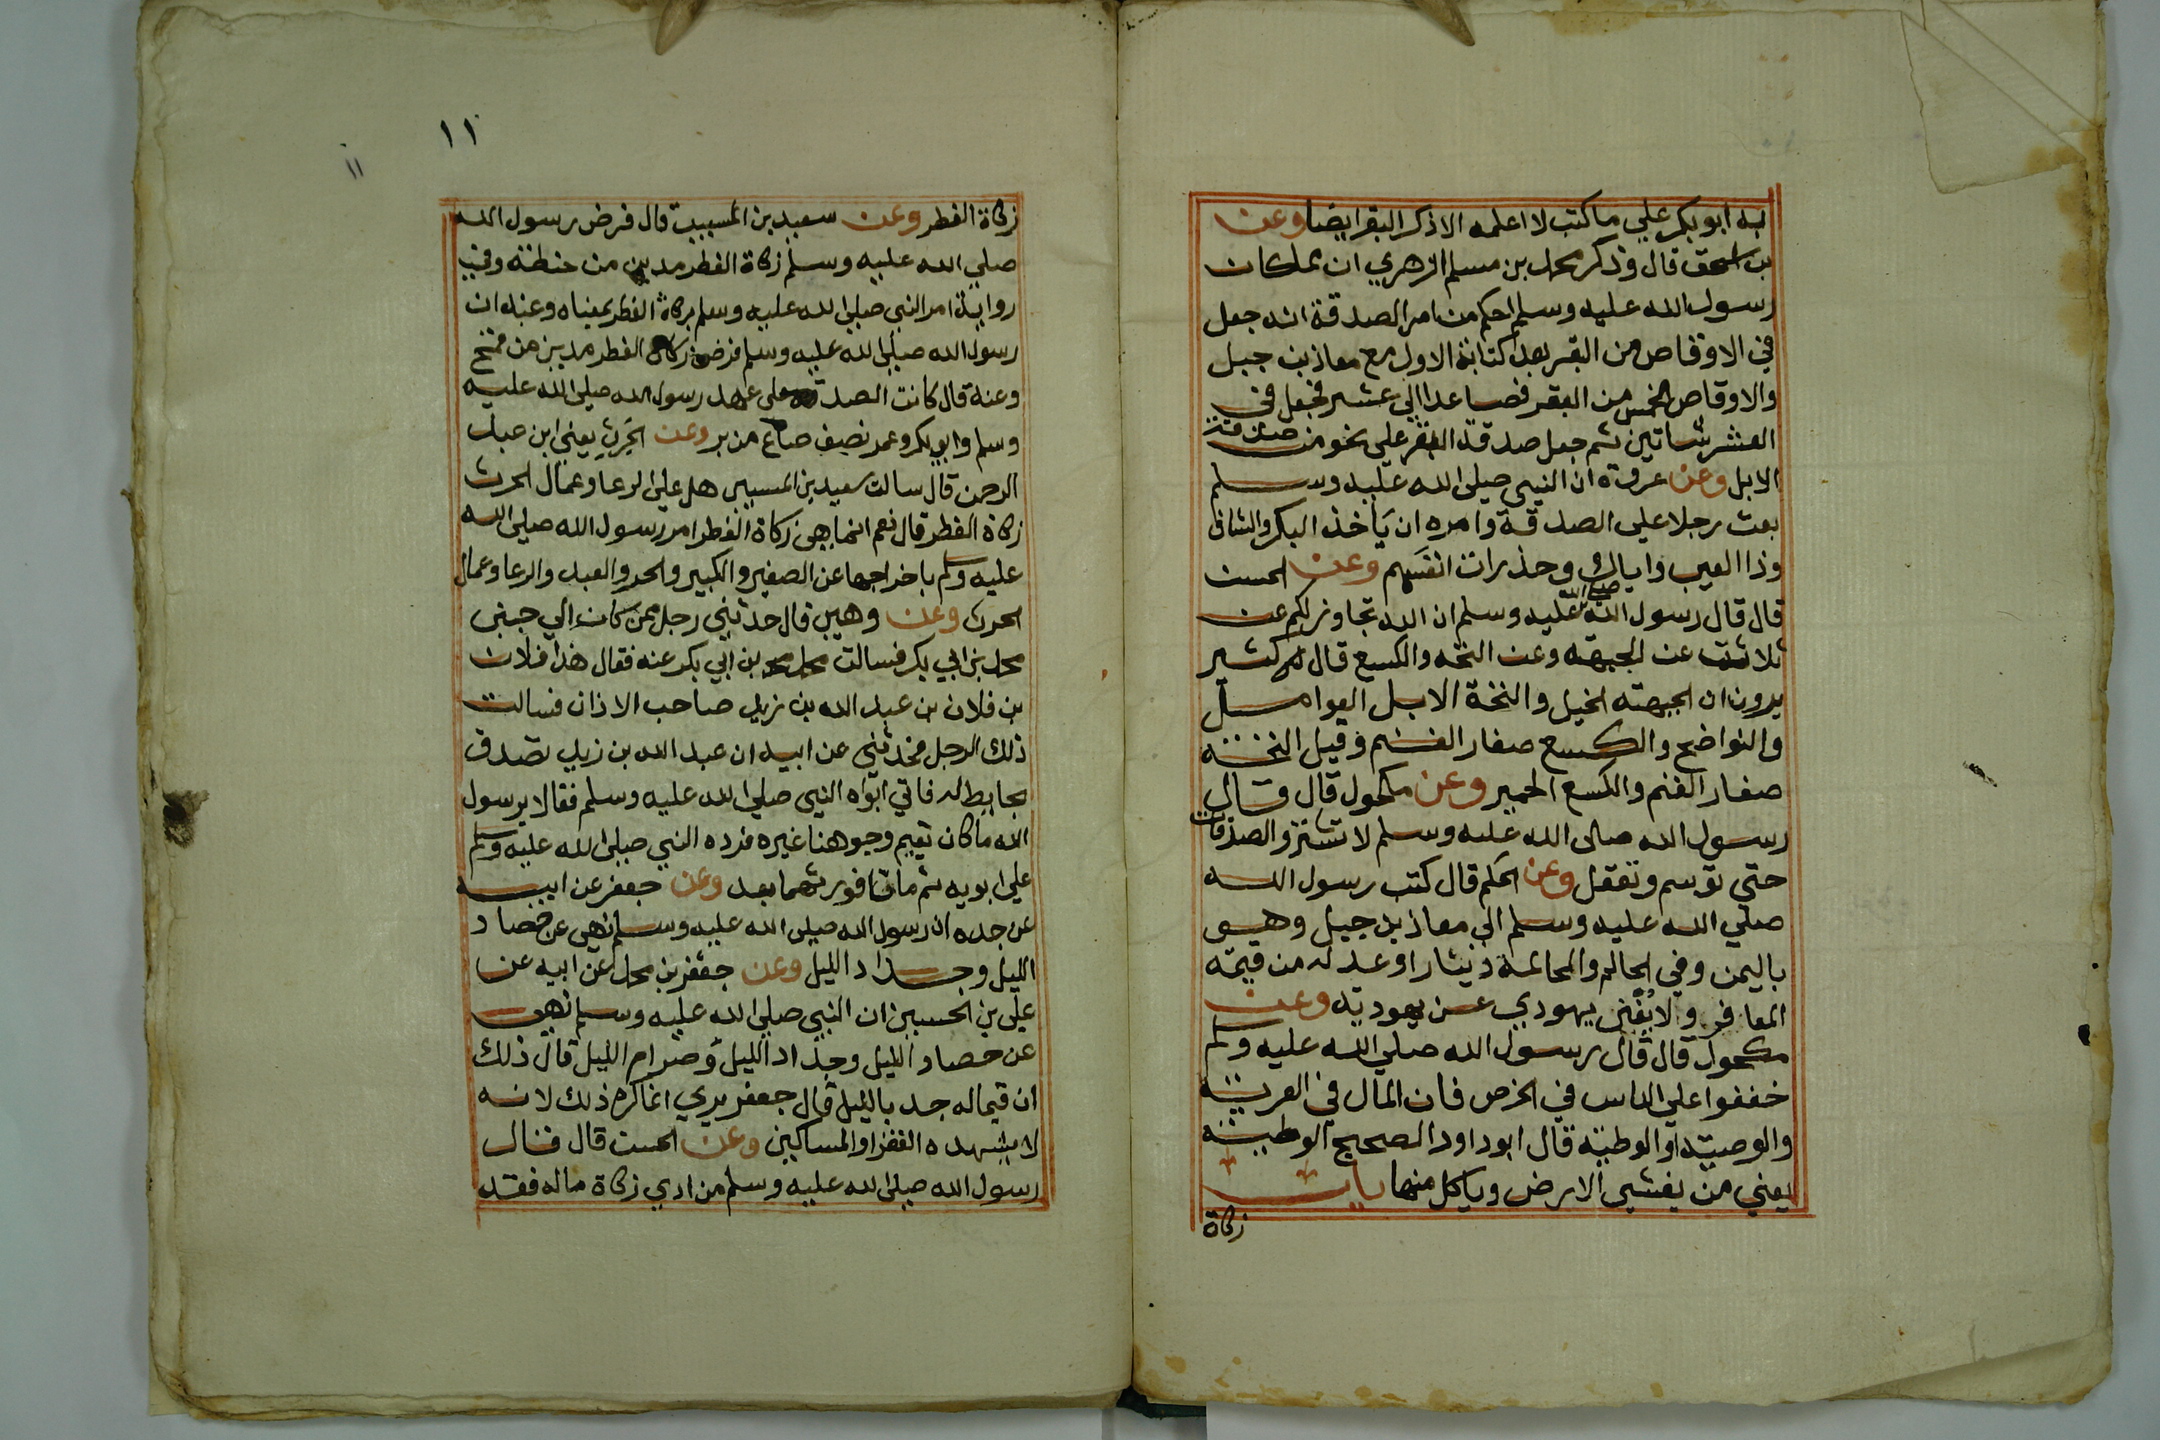 به ابو بكر علي ما كتب لا اعلمه الا ذكر البقر ايضا وعن
بن اسحق قال وذكر محمد بن مسلم الزهري ان مما كان
رسول الله عليه وسلم احكم من امر الصدقة انه جعل
في الاوقاص من البقر بعد كتابة الاول مع معاذ بن جبل
والاوقاص الخمس من البقر فصاعدا الي عشر فجعل في
العشر شاتين ثم جعل صدقة البقر علي نحو من صدقة
الابل وعن عروة ان النبي صلى الله عليه وسلم
بعث رجلا على الصدقة وامره ان ياخذ البكر والشاف
وذا العيب واياك وحذرات انفسهم وعن الحسن
قال قال رسول الله صلى الله عليه وسلم ان الله تجاوز لكم عن
ثلاث عن الجبهة وعن النخه والكسع قال كثير
يرون ان الجبهته الخيل والنخة الابل العوامل
والنواضح والكسع صغار الغنم وقيل النخه
صغار الغنم والكسع الحمير وعن مكحول قال قال
رسول الله صلى الله عليه وسلم لا تشتروا الصدقات
حتي توسم وتعقل وعن الحكم قال كتب رسول الله
صلي الله عليه وسلم الى معاذ بن جبل وهو
باليمن وفي الحالم والحالمة دينارا وعدله من قيمة
المعافر ولا يفتن يهودي عن يهوديته وعن
مكحول قال قال رسول الله صلي الله عليه وسلم
خففوا علي الناس في الخرص فان المال في العرية
والوصية او الوطية قال ابو داود الصحيح الوطية
يعني من يغشي الارض وياكل منها باب
زكاة
١١
١١
زكاة الفطر وعن سعيد بن المسيب قال فرض رسول الله
صلي الله عليه وسلم زكاة الفطر مدين من حنطة وفي
رواية امر النبي صلى الله عليه وسلم بزكاة الفطر بمعناه وعنه ان
رسول الله صلى الله عليه وسلم فرض زكاة الفطر مدين من قمح
وعنه قال كانت الصدقة على عهد رسول الله صلى الله عليه
وسلم وابو بكر وعمر نصف صاع من بر وعن الحرث يعني ابن عبد
الرحمن قال سالت سعيد بن المسيب هل علي الرعا وعمال الحرث
زكاة الفطر قال نعم انما هي زكاة الفطر امر رسول الله صلى الله
عليه وسلم باخراجها عن الصغير والكبير والحر والعبد والرعا وعمال
الحرث وعن وهيب قال حدثني رجل ممن كان الي جنبي
محمد بن ابي بكر فسالت محمد بن ابي بكر عنه فقال هذا فلان
بن فلان بن عبد الله بن زيد صاحب الاذان فسالت
ذلك الرجل فحدثني عن ابيه ان عبد الله بن زيد تصدق
بحايط له فاتي ابواه النبي صلي الله عليه وسلم فقالا يرسول
الله ما كان يقيم وجوهنا غيره فرده النبي صلى الله عليه وسلم
علي ابويه ثم ماتا فورثهما بعد وعن جعفر عن ابيه
عن جده ان رسول الله صلى الله عليه وسلم نهى عن حصاد
الليل وجداد الليل وعن جعفر بن محمد عن ابيه عن
علي بن الحسين ان النبي صلي الله عليه وسلم نهى
عن حصاد الليل وجذاد الليل وصرام الليل قال ذلك
ان قيما له جد بالليل قال جعفر يري انما كره ذلك لانه
لا يشهده الفقراو المساكين وعن الحسن قال قال
رسول الله صلى الله عليه وسلم من ادي زكاة ماله فقد